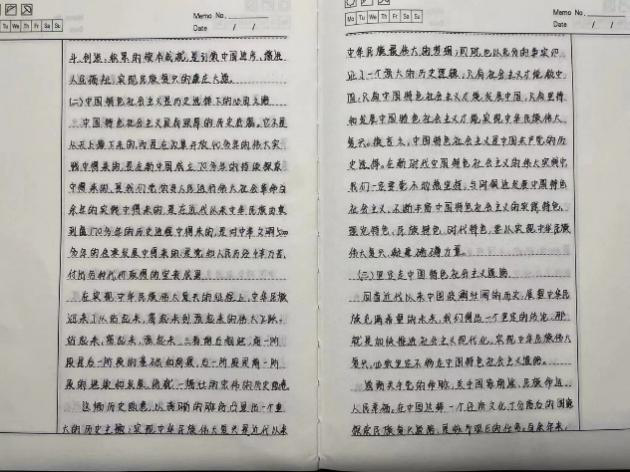 Memo No.
Date / /
Tu We Th Fr Sa Su
斗、创造、积累的根本成就,是引领中国进步、增进
人民福祉、实现民族复兴的康庄大道。
(二)中国特色社会主义是历史选择下的必由之路
中国特色社会主义最有深厚的历史底蕴。它不是
从天上掉下来的,而是在改革开放40多年的伟大实
践中得来的,是在新中国成立70多年的持续探索
中得来的,是我们党领导人民进行伟大社会革命与
余年的实践中得来的,是在近代以来中华民族由衰
到盛170多年的历史进程中得来的,是对中华文明5000
多年的传承发展中得来的,是党和人民历经千辛万苦、
付出各种代价取得的宝贵成果。
在实现中华民族伟大复兴的征程上,中华民族
迎来了从站起来、富起来到强起来的伟大飞跃。
站起来、富起来、强起来
段是后一阶段的基础和前提,后一阶段是前一阶
段的进步和发展
大的历史主题:实现中华民族伟大复兴是近代以来
Memo No.
Date / /
Mo Tu We Th Fr Sa Su
中华民族最伟大的梦想;同时,也以无穷的事实印
证了一个强大的历史逻辑:只有社会主义才能救中
国,只有中国特色社会主义才能发展中国,只有坚持
和发展中国特色社会主义才能实现中华民族伟大
复兴。
历史选择。在新时代中国特色社会主义的伟大实践中,
我们一定要毫不动摇坚持、与时俱进发展中国特色
社会主义,不断丰富中国特色社会主义的实践特色、
理论特色、民族特色、时代特色,
伟大复兴,凝聚磅礴力量。
(三)坚定走中国特色社会主义道路
回首近代以来中国波澜壮阔的历史,展望中华民
族充满希望的未来,我们得出一个坚定的结论,那
就是加快推进社会主义现代化,实现中华民族伟大
复兴,必须坚定不移走中国特色社会主义道路。
道路关乎党的命脉,关乎国家前途、民族命运、
人民幸福。在中国这样一个经济文化十分落后的国家
探索民族复兴道路,是极为艰巨的任务。